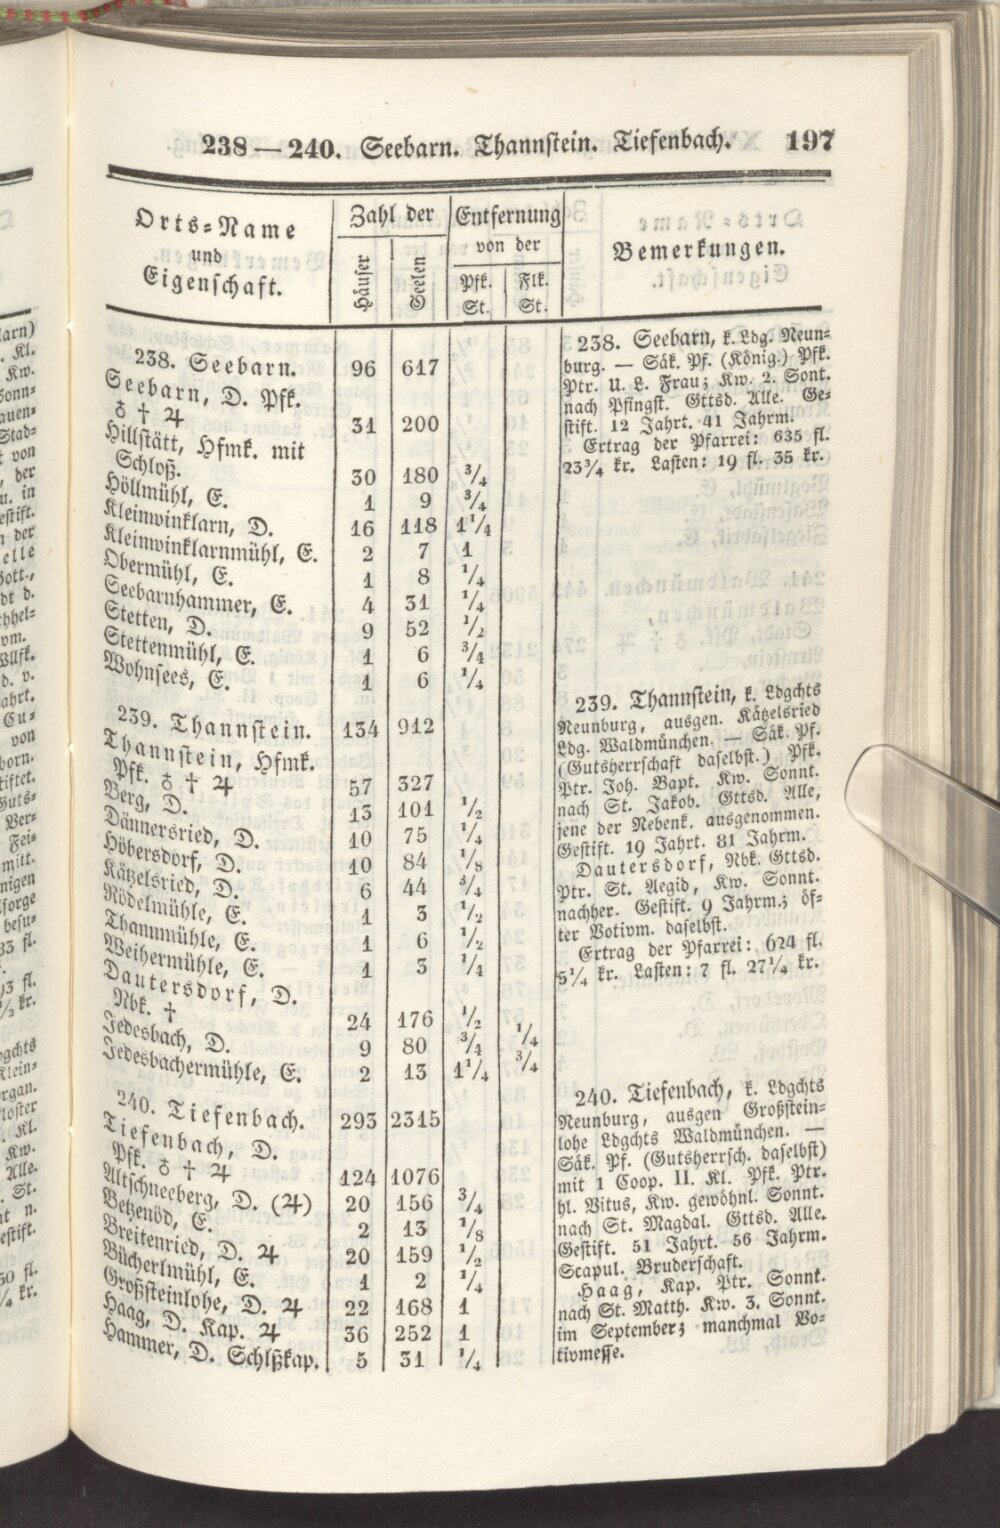 238 — 240. Seebarn. Thannstein. Tiefenbach. 197
Orts=Name
und
Eigenschaft.
Zahl der
Häuser
Seelen
Entfernung
von der
Pfk. St.
Flk. St.
Bemerkungen.
238. Seebarn. 96 617
Seebarn, D. Pfk.
♁ † ♃ 31 200
Hillstätt, Hfmk. mit
Schloß. 30 180 3/4
Höllmühl, E. 1 9 3/4
Kleinwinklarn, D. 16 118 1 1/4
Kleinwinklarnmühl, E. 2 7 1
Obermühl, E. 1 8 1/4
Seebarnhammer, E. 4 31 1/4
Stetten, D. 9 52 1/2
Stettenmühl, E. 1 6 3/4
Wohnsees, E. 1 6 1/4
239. Thannstein. 134 912
Thannstein, Hfmk.
Pfk. ♁ † ♃ 57 327
Berg, D. 13 101 1/2
Dännersried, D. 10 75 1/4
Höbersdorf, D. 10 84 1/8
Kätzelsried, D. 6 44 3/4
Rödelmühle, E. 1 3 1/2
Thannmühle, E. 1 6 1/2
Weihermühle, E. 1 3 1/4
Dautersdorf, D.
Nbk. † 24 176 1/2
Jedesbach, D. 9 80 3/4 1/4
Jedesbachermühle, E. 2 13 1 1/4 3/4
240. Tiefenbach. 293 2315
Tiefenbach, D.
Pfk. ♁ † ♃ 124 1076
Altschneeberg, D. (♃) 20 156 3/4
Betzenöd, E. 2 13 1/8
Breitenried, D. ♃ 20 159 1/2
Bücherlmühl, E. 1 2 1/4
Großsteinlohe, D. ♃ 22 168 1
Haag, D. Kap. ♃ 36 252 1
Hammer, D. Schlßkap. 5 31 1/4
238. Seebarn, k. Ldg. Neun=
burg. — Säk. Pf. (König.) Pfk.
Ptr. U. L. Frau; Kw. 2. Sont.
nach Pfingst. Gttsd. Alle. Ge=
stift. 12 Jahrt. 41 Jahrm.
Ertrag der Pfarrei: 635 fl.
23 3/4 kr. Lasten: 19 fl. 35 kr.
239. Thannstein, k. Ldgchts
Neunburg, ausgen. Kätzelsried
Ldg. Waldmünchen. — Säk. Pf.
(Gutsherrschaft daselbst.) Pfk.
Ptr. Joh. Bapt. Kw. Sonnt.
nach St. Jakob. Gttsd. Alle,
jene der Nebenk. ausgenommen.
Gestift. 19 Jahrt. 81 Jahrm.
Dautersdorf, Nbk. Gttsd.
Ptr. St. Aegid, Kw. Sonnt.
nachher. Gestift. 9 Jahrm.; öf=
ter Votivm. daselbst.
Ertrag der Pfarrei: 624 fl.
5 1/4 kr. Lasten: 7 fl. 27 1/4 kr.
240. Tiefenbach, k. Ldgchts
Neunburg, ausgen Großstein=
lohe Ldgchts Waldmünchen. —
Säk. Pf. (Gutsherrsch. daselbst)
mit 1 Coop. II. Kl. Pfk. Ptr.
hl. Vitus, Kw. gewöhnl. Sonnt.
nach St. Magdal. Gttsd. Alle.
Gestift. 51 Jahrt. 56 Jahrm.
Scapul. Bruderschaft.
Haag, Kap. Ptr. Sonnt.
nach St. Matth. Kw. 3. Sonnt.
im September; manchmal Vo=
tivmesse.